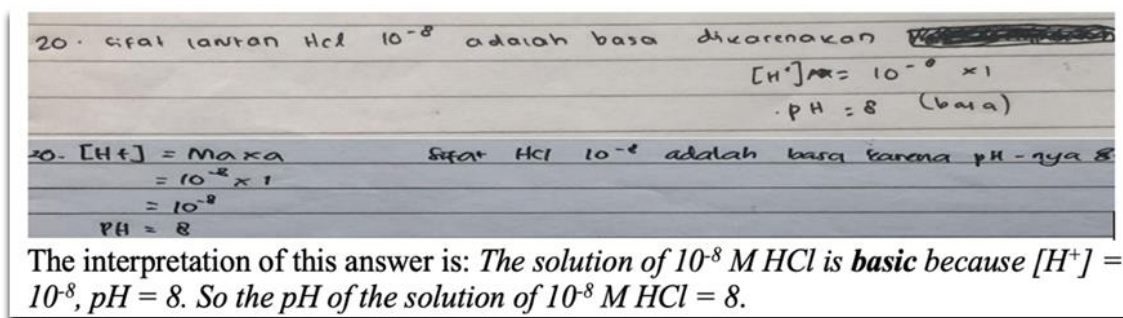 20. sifat larutan HCl 10⁻⁸ adalah basa dikarenakan
[H⁺] = 10⁻⁸ × 1
pH = 8 (basa)
20. [H+] = Ma x a Sifat HCl 10⁻⁸ adalah basa karena pH-nya 8
= 10⁻⁸ × 1
= 10⁻⁸
PH = 8
The interpretation of this answer is: The solution of 10⁻⁸ M HCl is basic because [H⁺] =
10⁻⁸, pH = 8. So the pH of the solution of 10⁻⁸ M HCl = 8.